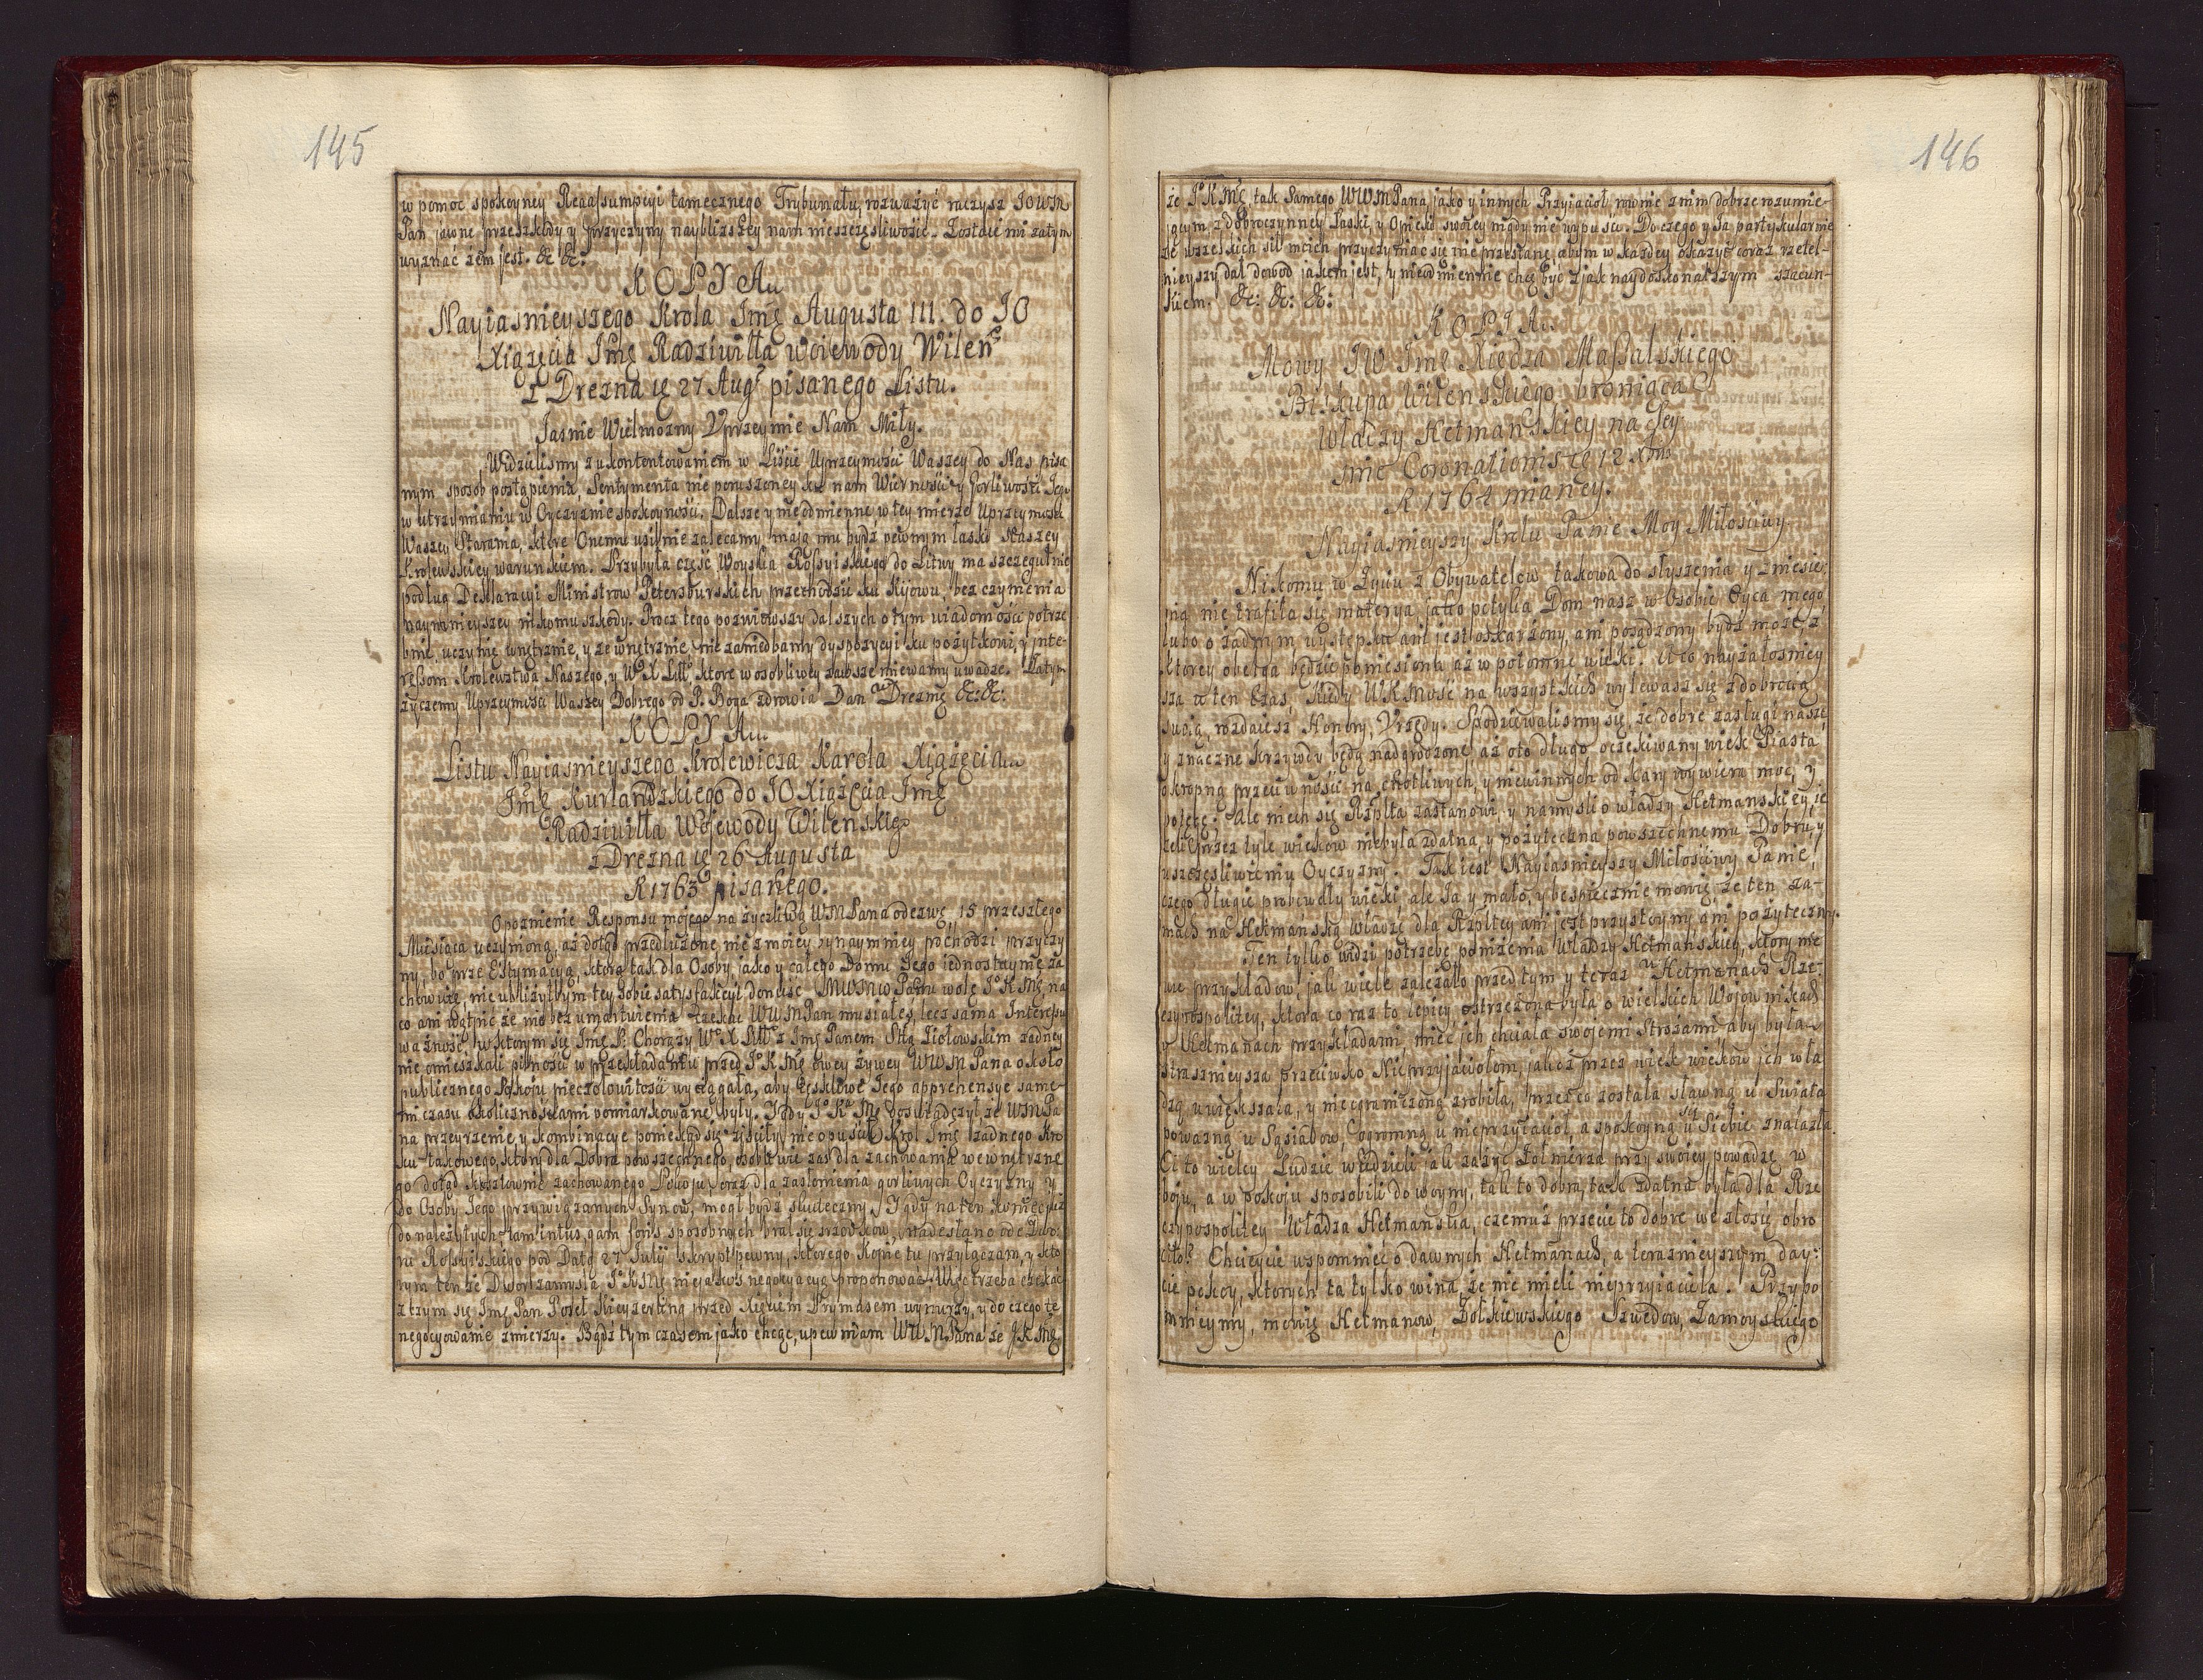 145
w pomoc spokoyney Reassumpcyi tamecznego Trybunału, rozważyć raczysz JOWM
Pan jawne przeszkody y przyczyny nayblizszey nam nieszczęsliwości. Zostaie mi zatym
wyznać żem jest. &c &c:
KOPYA
Nayiasnieyszego Krola Jmę Augusta III. do JO
Xiązęcia Jmę Radziwiłła woiewody Wilen
z Drezna 27 Augs pisanego Listu.
Jasnie Wielmozny Uprzeymie Nam Miły.
Widzielismy z ukontentowaniem w Liście Uprzeymości Waszey do Nas pisa
nym sposob postąpienia, Sentymenta nie poruszoney ku nam Wierności y Gorliwości Jego
w utrzymaniu w Oyczyznie spokoyności. Dalsze y nieodmienne w tey mierze Uprzeymości
Waszey Starania, które Onemu usilnie zalecamy mają mu bydź pewnym łaski Naszey
Krolewskiey warunkiem. Przybyła część Woyska Rossyiskiego do Litwy ma szczegulnie
podług Deklaracyi Ministrow Petersburskich przechodzić ku Kijowu, bez czynienia
naymnieyszey nikomu szkody. Procz tego pozwiewszy dalszych o tym wiadomości potrze
bnie, uczynię wnętrznie, y zewnętrznie nie zaniedbamy dyspozycyi ku pożytkowi, y inte-
ressom Królewstwa Naszego, y W X Litt, ktore w osobliwey zawsze miewamy uwadze. Zatym
życzemy Uprzeymości Waszey Dobrego od P. Boga zdrowia Dan w Dreznie &c: &c:
KOPYA
Listu Nayiasnieyszego Krolewicza Karola Xiążęcia
Jmę Kurlandzkiego do JO Xiążęcia Jmę
Radziwiłła Wojewody Wilenskiego
z Drezna 26 Augusta
R 1763 pisanego.
Opoznienie Responsu mojego na życzliwą WM Pana odezwę, 15 przeszłego
Miesiąca uczynioną, aż dotąd przedłużone nie z moiey bynaymniey pochodzi przyczy
ny, bo prze Estymacyą, ktorą tak dla Osoby jako y całego Domu Jego iednostaynię za
chowuię, nie ubliżyłbym tey sobie satysfakcyi donieść WW Panu wolę Jo K Mę na
co ani wątpić że nie bez umartwienia czekać WWM Pan musiałeś, lecz sama Interessu
ważność w ktorym się Jmę P: Chorąży Wo X Litto z Jmę Panem Stką Ziołowskim żadney
nie omieszkali pilności w przekładaniu przed Jo K Mę owey żywey WWM Pana o koło
publicznego Pokoju pieczołowitości wyciągała, aby tęskliwe Jego apprehensye same-
mi czasu okolicznościami pomiarkowane były. Gdy Jo Ka Mę doswiadczył że WM Pa
na przeyrzenie, y kombinacye poniekąd się ziściły, nie opuścił Krol Jmę żadnego Kro
ku takowego, ktory dla Dobra powszechnego, osobliwie zas dla zachowania wewnętrzne
go dotąd kosztownie zachowanego Pokoju, oraz dla zasłonienia gorliwych Oyczyzny y
do Osoby Jego przywiązanych Synow, mogł bydź skuteczny. Y gdy na ten koniec iuż
do należytych tam intus, qam foris sposobnych brał się srzodkow, nadesłano od Dwo-
ru Rossyiskiego pod Datą 27 Julij skrypt pewny, ktorego Kopię tu przyłączam, y kto
rym ten że Dwor zamysla Jo K Mę niejakoś negocyacyą proponować. Więc trzeba czekać
z czym się Jmę Pan Poseł Kieyzerling przed Xięciem Prymasem wynurzy, y do czego te
negocyowanie zmierzy. Bądź tym czasem jako chcę, upewniam WWM Pana że J K Mę
146
że Jo K Mę tak Samego WWM Pana, jako y innych Przyiacioł, rownie z nim dobrze rozumie-
jącym, z dobroczynney Łaski, y Opieki swoiey nigdy nie wypuści. Do czego y Ja partykularnie
ze wszelkich sił moich przyczyniać się nie przestanę, abym w każdey okazyi coraz rzetel-
nieyszy dał dowod jakem jest, y nieodmiennie chcę być z jak naydoskonalszym szacun-
kiem. &c: &c: &c:
KOPIA
Mowy JW Jmę Xiędza Massalskiego
Biskupa Wilenskiego broniąca
Władzy Hetmanskiey na Sey
mie Coronationis 12 Xbris
R 1764 mianey.
Nayiasnieyszy Krolu Panie Moy Miłościwy
Nikomu w Życiu z Obywatelow takowa do słyszenia y zniesie-
nia nie trafiła się materya jako potyka Dom nasz w Osobie Oyca mego
lubo o żadnym występku ani jest oskarżony, ani posądzony bydź może, z
ktorey obelga będzie poniesiona aż w potomne wieki. A co nayżałosniey
sza w ten Czas, kiedy WK Mość na wszystkich wylewasz się z dobrocią
swoią, rozdaiesz Honory, Urzędy. Spodziewalismy się, że dobre zasługi nasze,
y znaczne krzywdy będą nadgrodzone, aż oto długo oczekiwany wiek Piasta
okropną przeciwność na cnotliwych, y niewinnych od kary wywiera moc, y
potęgę. Ale niech się Rzplta zastanowi, y namysli o władzy Hetmanskiey, je
żeli przez tyle wiekow niebyła zdatna, y pożyteczna powszechnemu Dobru, y
uszczęsliwieniu Oyczyzny. Tak iest Nayiasnieyszy Miłościwy Panie,
czego długie probowały wieki, ale Ja y mało, y bespiecznie mowię że ten za-
mach na Hetmanską Władzę dla Rzpltey ani jest przystoyny ani pożyteczny.
Ten tylko widzi potrzebę poniżenia Władzy Hetmanskiey, ktory nie
wie przykładow, jak wiele zależało przed tym y teraz w Hetmanach Rze-
czypospolitey, ktora co raz to lepiey ostrzeżona była o wielkich Wojownikach
y Hetmanach przykładami, mieć jch chciała swojemi Stróżami aby była
straszneysza przeciwko Nieprzyjaciołom, jakoż przez wiek wiekow jch wła
dzą uwiększała, y nieograniczoną zrobiła, przez co została sławną u Swiata
poważną u Sąsiadow, ogromną u nieprzyiacioł, a spokoyną u Siebie się znalazła.
Ci to wielcy Ludzie wiedzieli jak zażyć Żołnierza przy swoiey powadze w
boju, a w pokoju sposobili do woyny, tak to dobra, tak zdatna była dla Rze
czypospolitey Władza Hetmanska, czemuż przecie to dobre we złość obro
ciło? Chcieycie wspomnieć o dawnych Hetmanach, a teraznieyszym day-
cie pokoy, ktorych ta tylko wina, że nie mieli nieprzyiaciela. Przypo
mnieymy, mowię Hetmanow, Żołkiewskiego Szwedow, Zamoyskiego